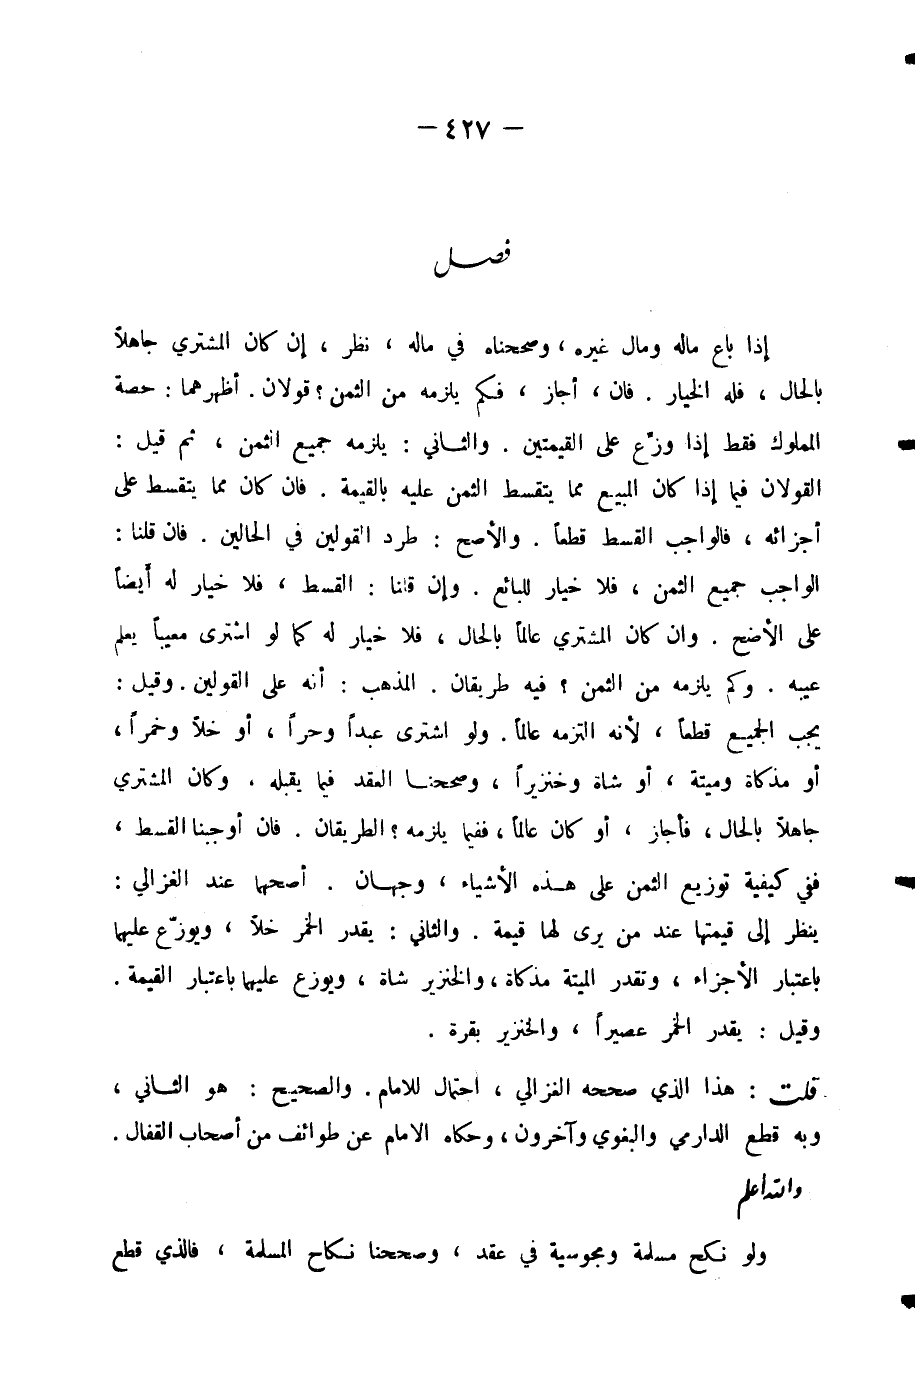 — ٤٢٧ —
فصل
إذا باع ماله ومال غيره ، وصححناه في ماله ، نظر ، إن كان المشتري جاهلاً
بالحال ، فله الخيار . فان ، أجاز ، فكم يلزمه من الثمن ؟ قولان . أظهرهما : حصة
المملوك فقط إذا وزّع على القيمتين . والثاني : يلزمه جميع الثمن ، ثم قيل :
القولان فيما إذا كان المبيع مما يتقسط الثمن عليه بالقيمة . فان كان مما يتقسط على
أجزائه ، فالواجب القسط قطعاً . والأصح : طرد القولين في الحالين . فان قلنا :
الواجب جميع الثمن ، فلا خيار للبائع . وإن قلنا : القسط ، فلا خيار له أيضاً
على الأصح . وان كان المشتري عالماً بالحال ، فلا خيار له كما لو اشترى معيباً يعلم
عيبه . وكم يلزمه من الثمن ؟ فيه طريقان . المذهب : أنه على القولين . وقيل :
يجب الجميع قطعاً ، لأنه التزمه عالماً . ولو اشترى عبداً وحراً ، أو خلاً وخمراً ،
أو مذكاة وميتة ، أو شاة وخنزيراً ، وصححنا العقد فيما يقبله . وكان المشتري
جاهلاً بالحال ، فأجاز ، أو كان عالماً ، ففيما يلزمه ؟ الطريقان . فان أوجبنا القسط ،
ففي كيفية توزيع الثمن على هذه الأشياء ، وجهان . أصحهما عند الغزالي :
ينظر إلى قيمتها عند من يرى لها قيمة . والثاني : يقدر الخمر خلاً ، ويوزّع عليهما
باعتبار الأجزاء ، وتقدر الميتة مذكاة ، والخنزير شاة ، ويوزع عليهما باعتبار القيمة .
وقيل : يقدر الخمر عصيراً ، والخنزير بقرة .
قلت : هذا الذي صححه الغزالي ، احتمال للامام . والصحيح : هو الثاني ،
وبه قطع الدارمي والبغوي وآخرون ، وحكاه الامام عن طوائف من أصحاب القفال .
والله أعلم
ولو نكح مسلمة ومجوسية في عقد ، وصححنا نكاح المسلمة ، فالذي قطع